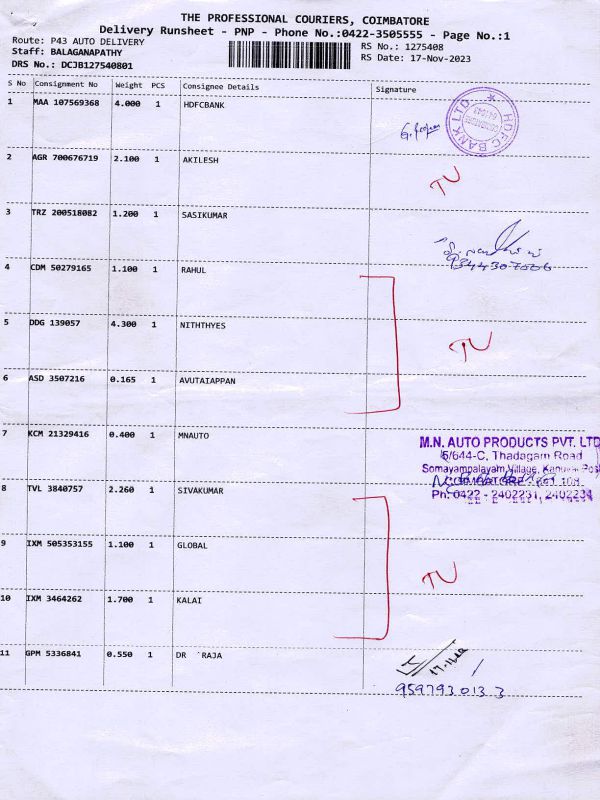 THE PROFESSIONAL COURIERS, COIMBATORE
Delivery Runsheet - PNP - Phone No.:0422-3505555 - Page No.:1
Route: P43 AUTO DELIVERY
RS No.: 1275408
Staff: BALAGANAPATHY
RS Date: 17-Nov-2023
DRS No.: DCJB127540801
S No Consignment No Weight PCS Consignee Details Signature
1 MAA 107569368 4.000 1 HDFCBANK
HDFC BANK LTD
2 AGR 700676719 2.100 1 AKILESH
TU
3 TRZ 200518082 1.200 1 SASIKUMAR
4 CDM 50279165 1.100 1 RAHUL
5 DDG 139057 4.300 1 NITHTHYES
TU
6 ASD 3507216 0.165 1 AVUTAIAPPAN
7 KCM 21329416 0.400 1 MNAUTO
M.N. AUTO PRODUCTS PVT. LTD
5/644-C, Thadagam Road
Somayampalayam Village, Kanuvai Post
Ph: 0422 - 2402231, 2402234
8 TVL 3840757 2.260 1 SIVAKUMAR
9 IXM 505353155 1.100 1 GLOBAL
TU
10 IXM 3464262 1.700 1 KALAI
11 GPM 5336841 0.550 1 DR `RAJA
9597930133